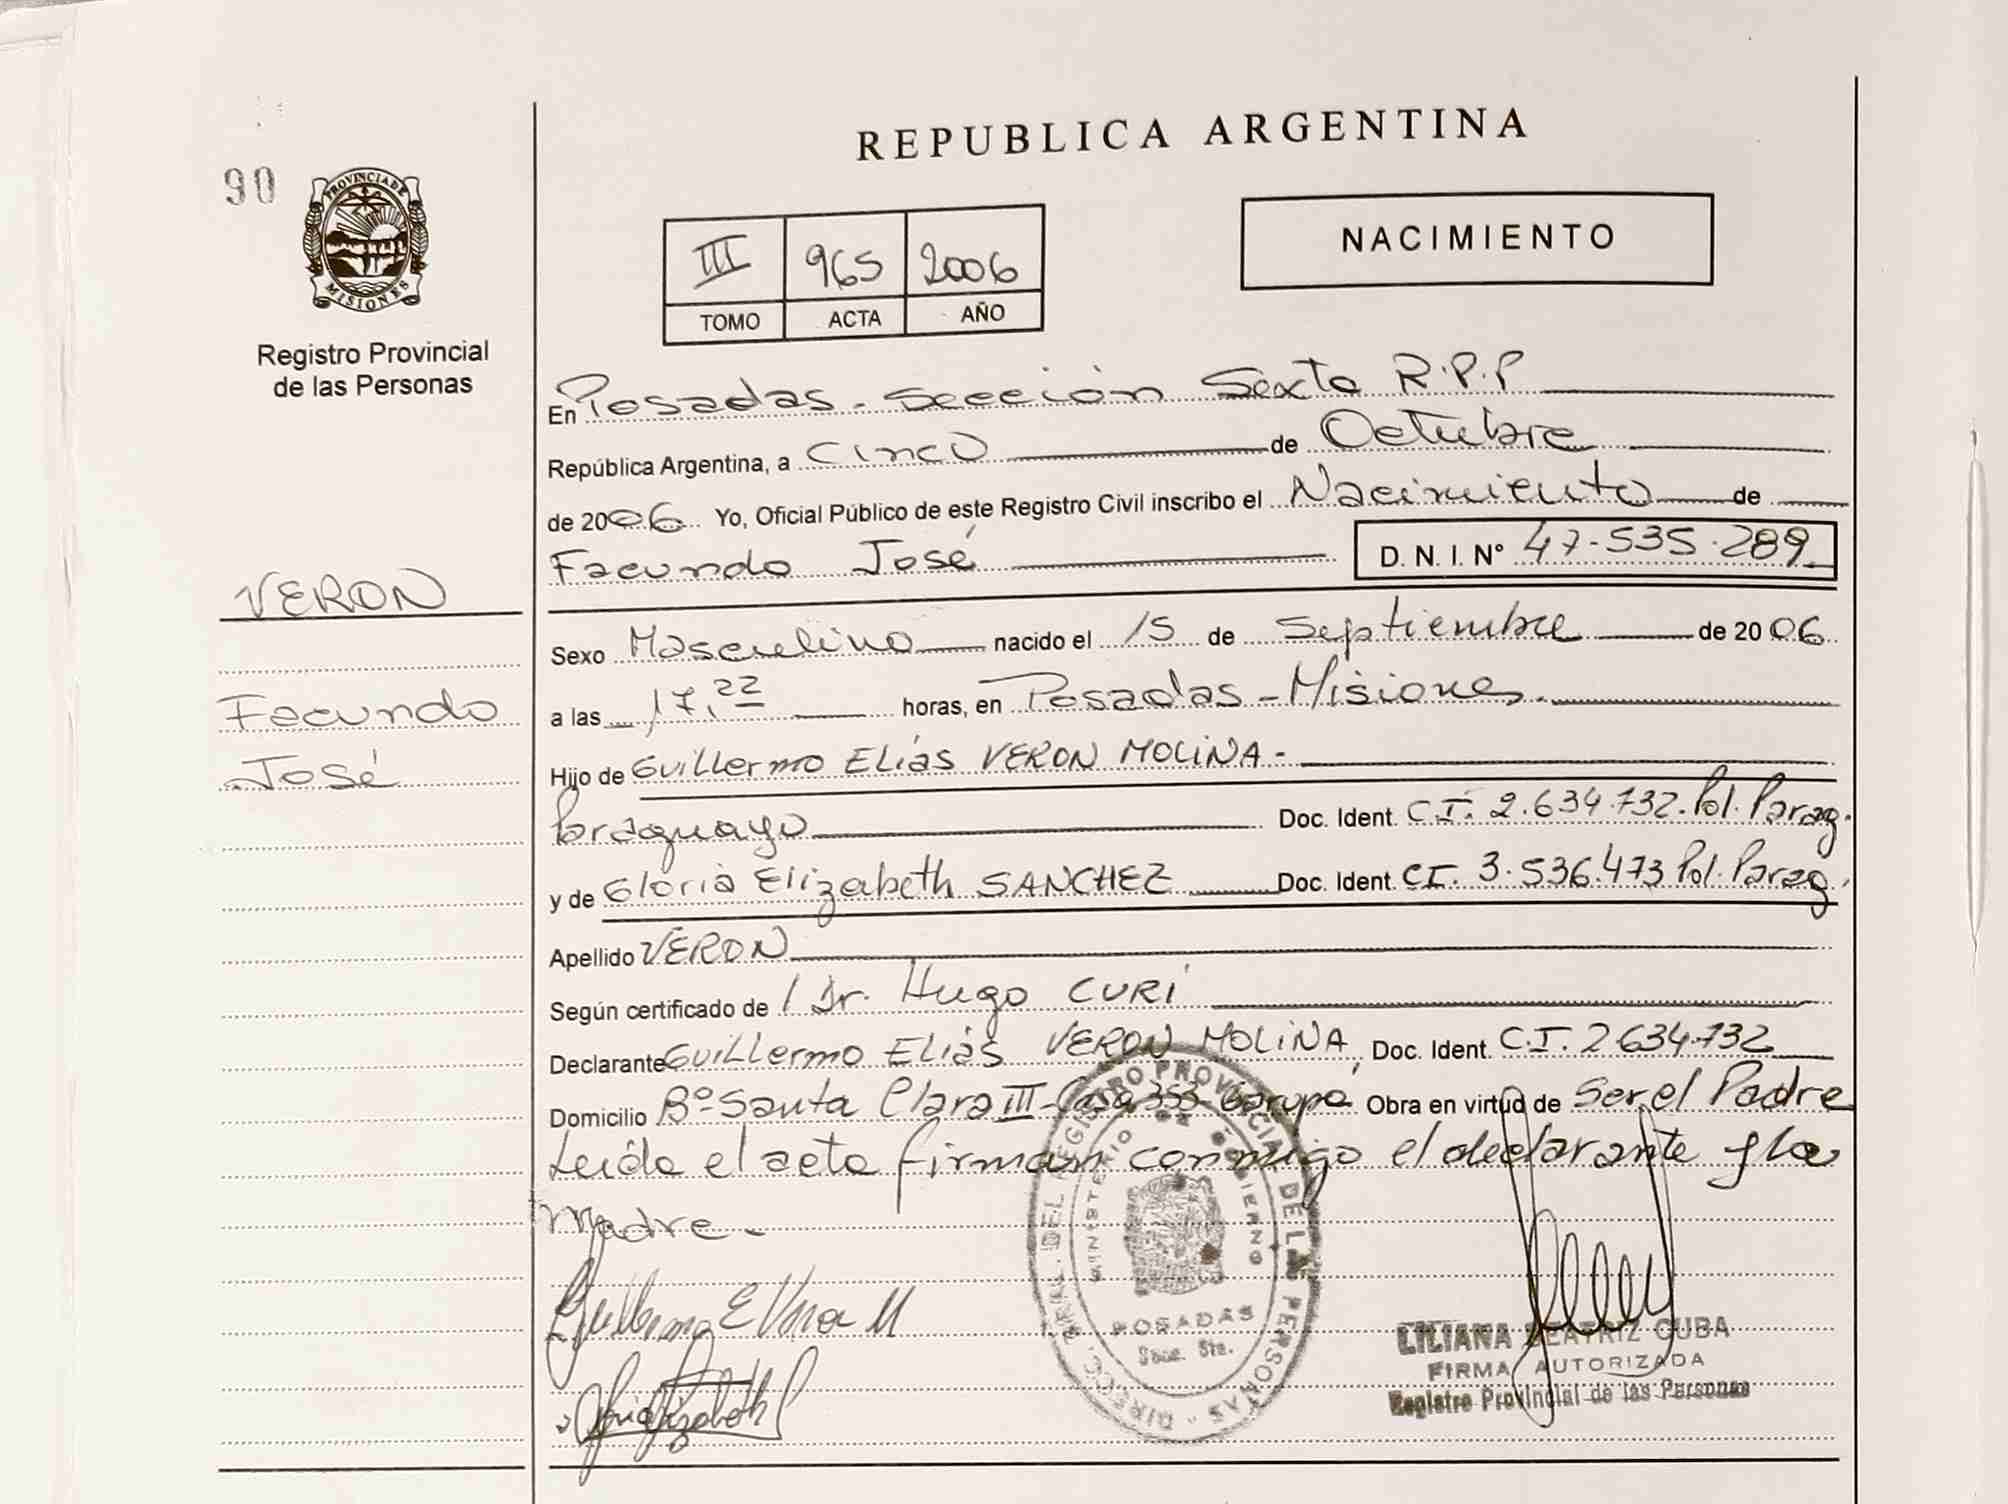 REPUBLICA ARGENTINA
90
PROVINCIA DE
MISIONES
Registro Provincial
de las Personas
III 965 2006
TOMO ACTA AÑO
NACIMIENTO
En Posadas - Sección Sexta R.P.P
República Argentina, a Cinco de Octubre
de 2006 Yo, Oficial Público de este Registro Civil inscribo el Nacimiento de
Facundo José D. N. I. N° 47.535.289
VERON
Sexo Masculino nacido el 15 de Septiembre de 2006
Facundo
a las 17,22 horas, en Posadas - Misiones.
José
Hijo de Guillermo Elías VERON MOLINA -
Paraguayo Doc. Ident. C.I. 2.634.732. Pol. Parag.
y de Gloria Elizabeth SANCHEZ Doc. Ident. C.I. 3.536.473 Pol. Parag.
Apellido VERON
Según certificado de / Dr. Hugo CURI
Declarante Guillermo Elías VERON MOLINA, Doc. Ident. C.I. 2.634.732
Domicilio Bº-Santa Clara III-Casa 353-Garupá Obra en virtud de Ser el Padre
Leída el acta firman conmigo el declarante y la
Madre.-
DIRECC. GRAL. DEL REGISTRO PROVINCIAL DE LAS PERSONAS
MINISTERIO DE GOBIERNO
POSADAS
Secc. Sta.
Guillermo E Veron M
LILIANA BEATRIZ CUBA
FIRMA AUTORIZADA
Registro Provincial de las Personas